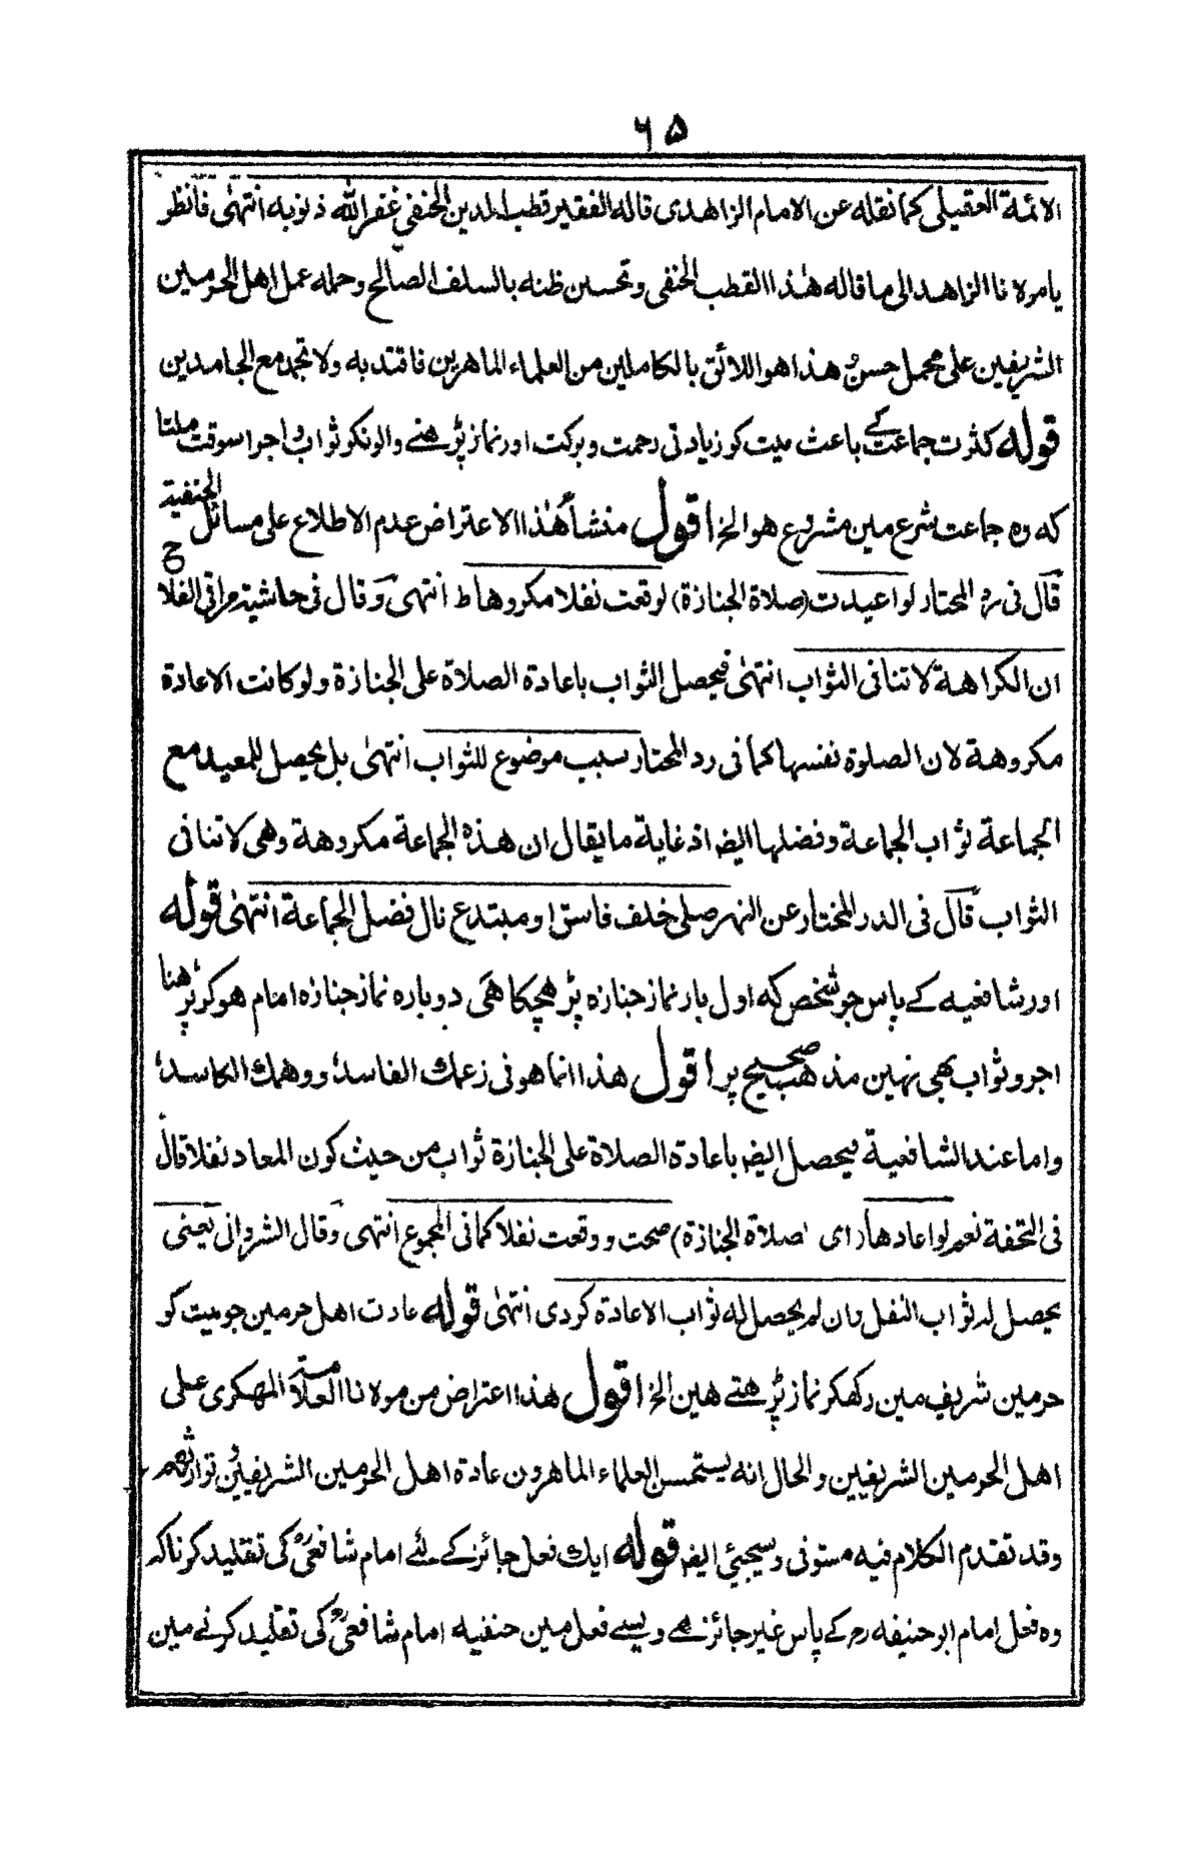 ۶۵
الائمة العقيلى كما نقله عن الامام الزاهدى قاله الفقير قطب الدين الحنفى غفر الله ذنوبه انتهى فانظر
يا مولانا الزاهد الى ما قاله هذا القطب الحنفى وتحسين ظنه بالسلف الصالح وحمله عمل اهل الحرمين
الشريفين على محمل حسن هذا هو اللائق بالكاملين من العلماء الماهرين فاقتد به ولا تجمد مع الجامدين
قوله كثرت جماعت کے باعث ميت كو زيادتى رحمت وبركت اور نماز پڑهنے والونكو ثواب واجر اسوقت ملتا
كه وه جماعت شرع مين مشروع هو الخ اقول منشأ هذا الاعتراض عدم الاطلاع على مسائل الحنفية
قال فى رد المحتار لو اعيدت (صلاة الجنازة) لوقعت نفلا مكروها ط انتهى وقال فى حاشية مراقى الفلاح
ان الكراهة لا تنافى الثواب انتهى فيحصل الثواب باعادة الصلاة على الجنازة ولو كانت الاعادة
مكروهة لان الصلوة نفسها كما فى رد المحتار سبب موضوع للثواب انتهى بل يحصل للمعيد مع
الجماعة ثواب الجماعة وفضلها ايضا اذ غاية ما يقال ان هذه الجماعة مكروهة وهى لا تنافى
الثواب قال فى الدر المختار عن النهر صلى خلف فاسق او مبتدع نال فضل الجماعة انتهى قوله
اور شافعيه کے پاس جو شخص كه اول بار نماز جنازه پڑ هچكا هى دوباره نماز جنازه امام هوكر پڑهنا
اجر وثواب بهى نهين مذهب صحيح پر اقول هذا انما هو فى زعمك الفاسد، ووهمك الكاسد،
واما عند الشافعية فيحصل ايضا باعادة الصلاة على الجنازة ثواب من حيث كون المعاد نفلا قال
فى التحفة نعم لو اعادها (اى صلاة الجنازة) صحت ووقعت نفلا كما فى المجموع انتهى وقال الشروانى يعنى
يحصل له ثواب النفل وان لم يحصل له ثواب الاعادة كردى انتهى قوله عادت اهل حرمين جو ميت كو
حرمين شريف مين ركهكر نماز پڑهتے هين الخ اقول هذا اعتراض من مولانا العلامة المهكرى على
اهل الحرمين الشريفين والحال انه يستحسن العلماء الماهرون عادة اهل الحرمين الشريفين وتوارثهم
وقد تقدم الكلام فيه مستوفى وسيجيئ ايضا قوله ايك فعل جائز کے لئے امام شافعىؒ كى تقليد كرنا كه
وه فعل امام ابو حنيفه رح کے پاس غير جائز هے ويسے فعل مين حنفيه امام شافعىؒ كى تقليد كرنے مين